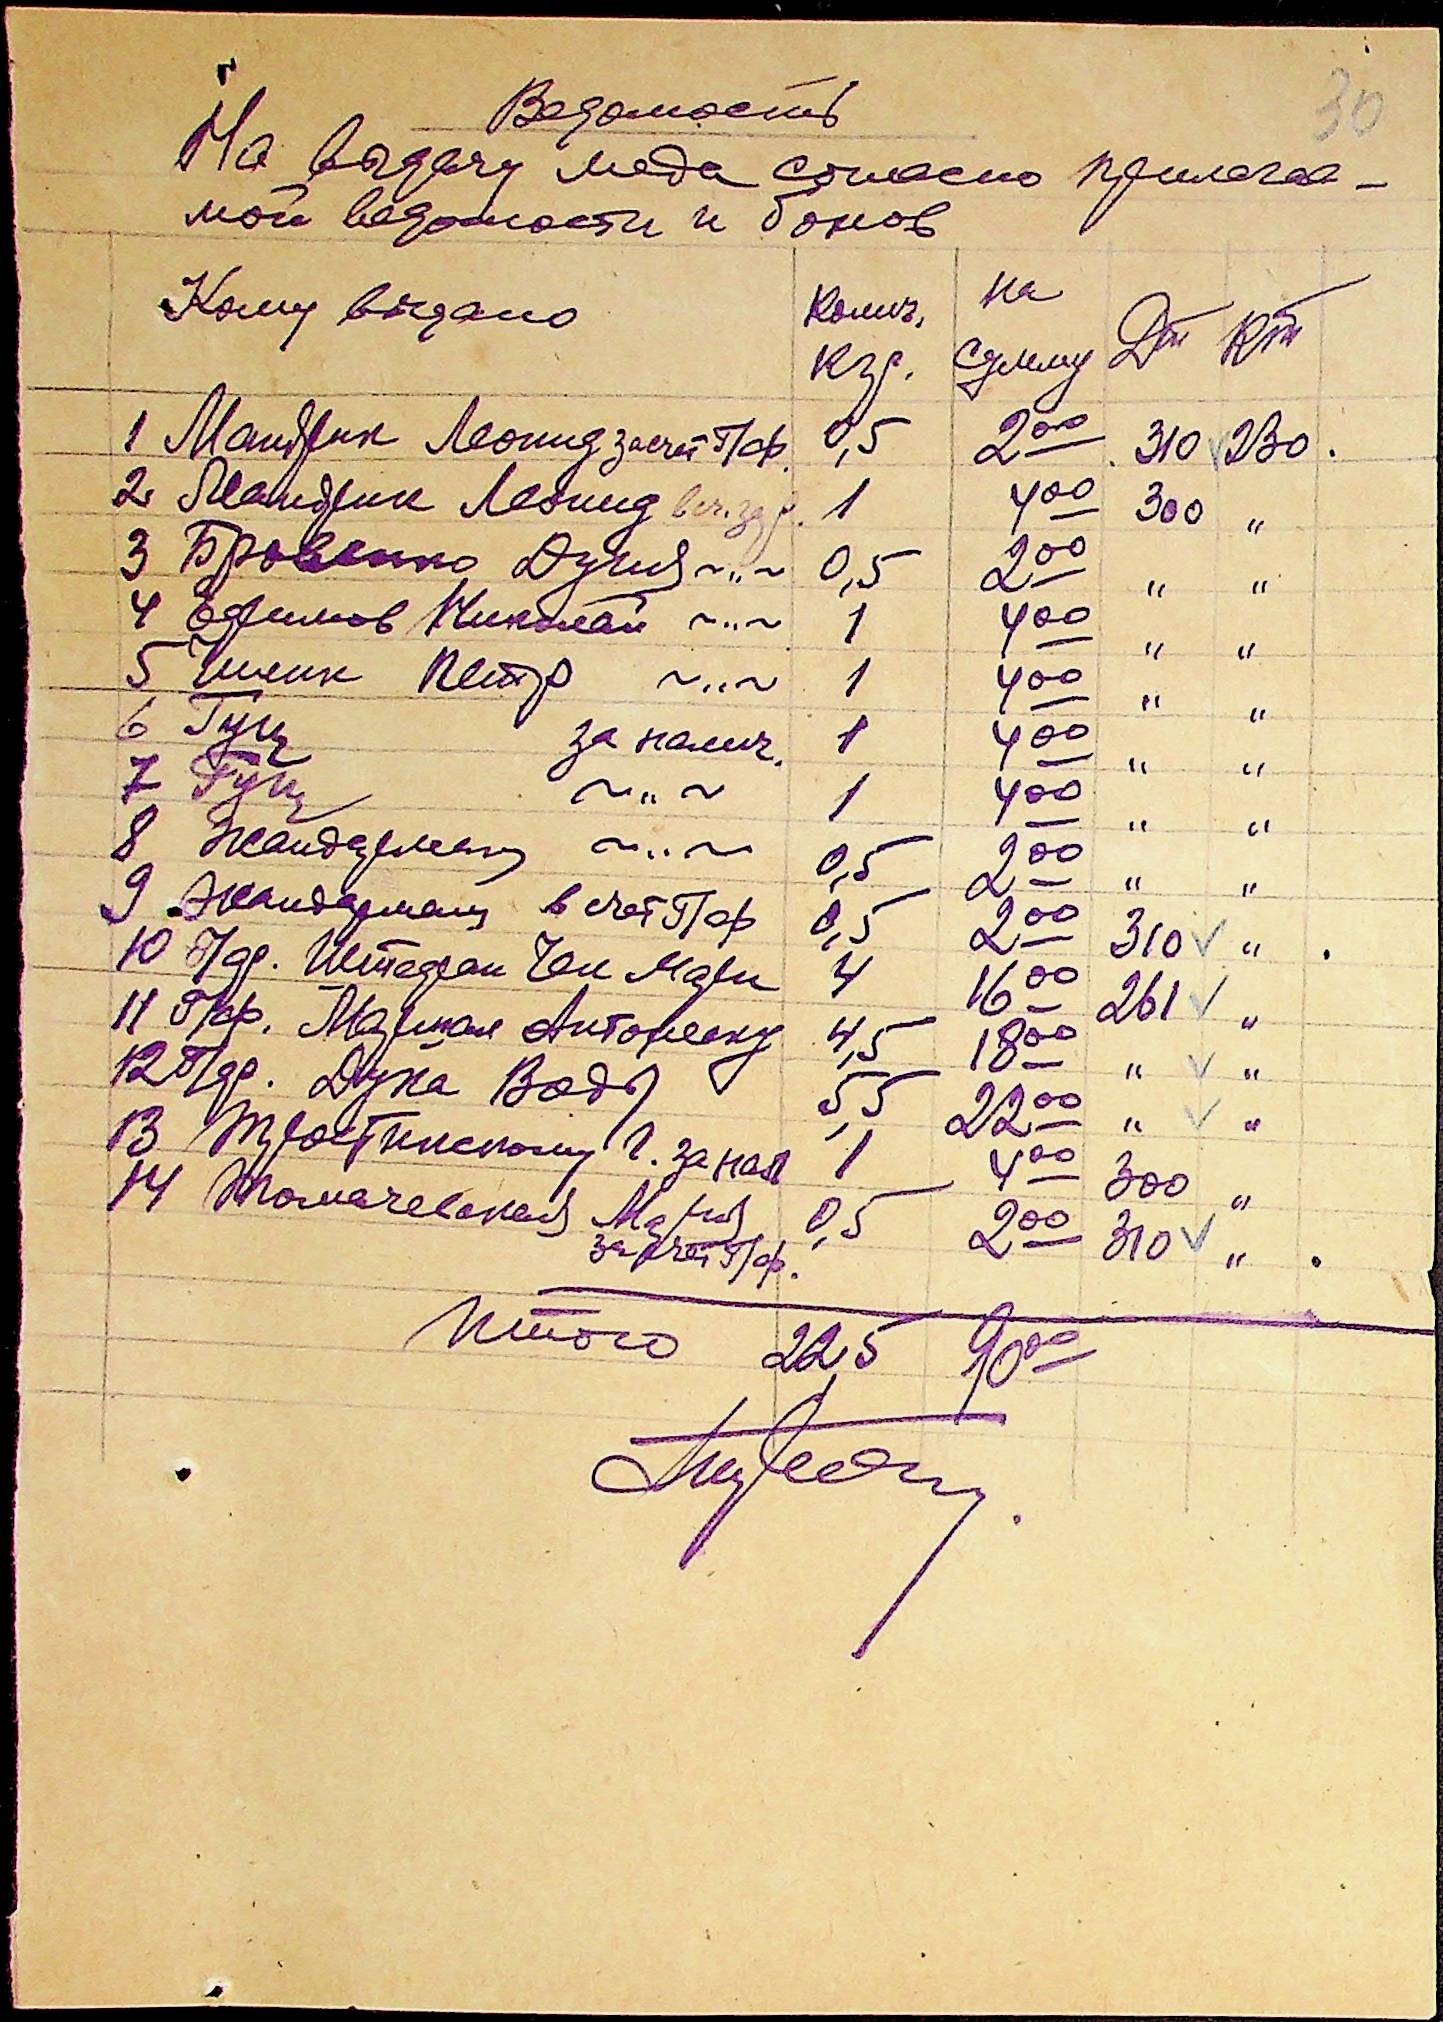 30
Ведомость
На выдачу меда согласно прилагае-
мой ведомости и бонов
Кому выдано Колич. кгр. На сумму Дт Кт
1 Мандрик Леонид за счет П/ф. 0,5 2 00 310 230.
2 Мандрик Леонид в сч. зар. 1 4 00 300 "
3 Бровенко Дуня ~"~ 0,5 2 00 " "
4 Ефимов Николай ~"~ 1 4 00 " "
5 Петр ~"~ 1 4 00 " "
6 Гуц за налич. 1 4 00 " "
7 Гуц ~"~ 1 4 00 " "
8 Жандарману ~"~ 0,5 2 00 " "
9 Жандарману в счет П/ф 0,5 2 00 310 " .
10 П/ф. Штефан Чел Маре 4 16 00 261 "
11 П/ф. Маршал Антонеску 4,5 18 00 " "
12 П/ф. Дука Водэ 5,5 22 00 " "
13 Тростинскому Г. за нал 1 4 00 300 "
14 Томачевская Мария 0,5 2 00 310 " .
за счет П/ф.
Итого 22,5 90 00